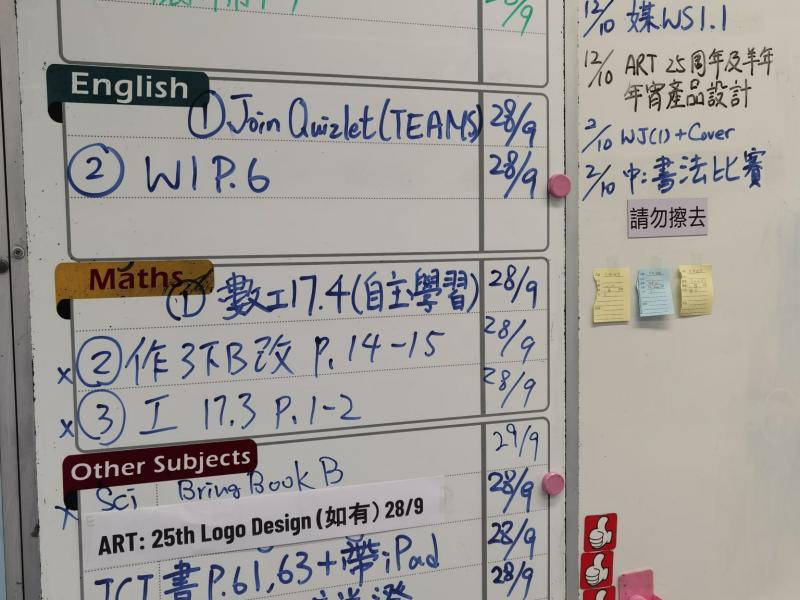 28/9
English
① Join Quizlet (TEAMS) 28/9
② W1 P.6 28/9
Maths
① 數工17.4(自主學習) 28/9
x ② 作3下B改 P.14-15 28/9
x ③ 工 17.3 P.1-2 28/9
29/9
Other Subjects
x Sci Bring Book B 28/9
ART: 25th Logo Design (如有) 28/9
28/9
ICT 書P.61,63+帶iPad 28/9
12/10 媒WS1.1
12/10 ART 25周年及羊年
年宵產品設計
2/10 WJ(1)+Cover
2/10 中:書法比賽
請勿擦去